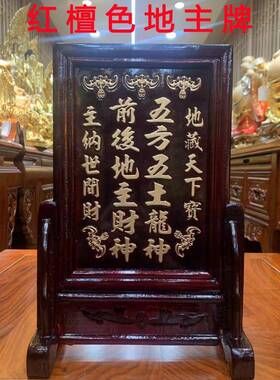 红檀色地主牌
地藏天下寶
五方五土龍神
前後地主財神
主納世間財